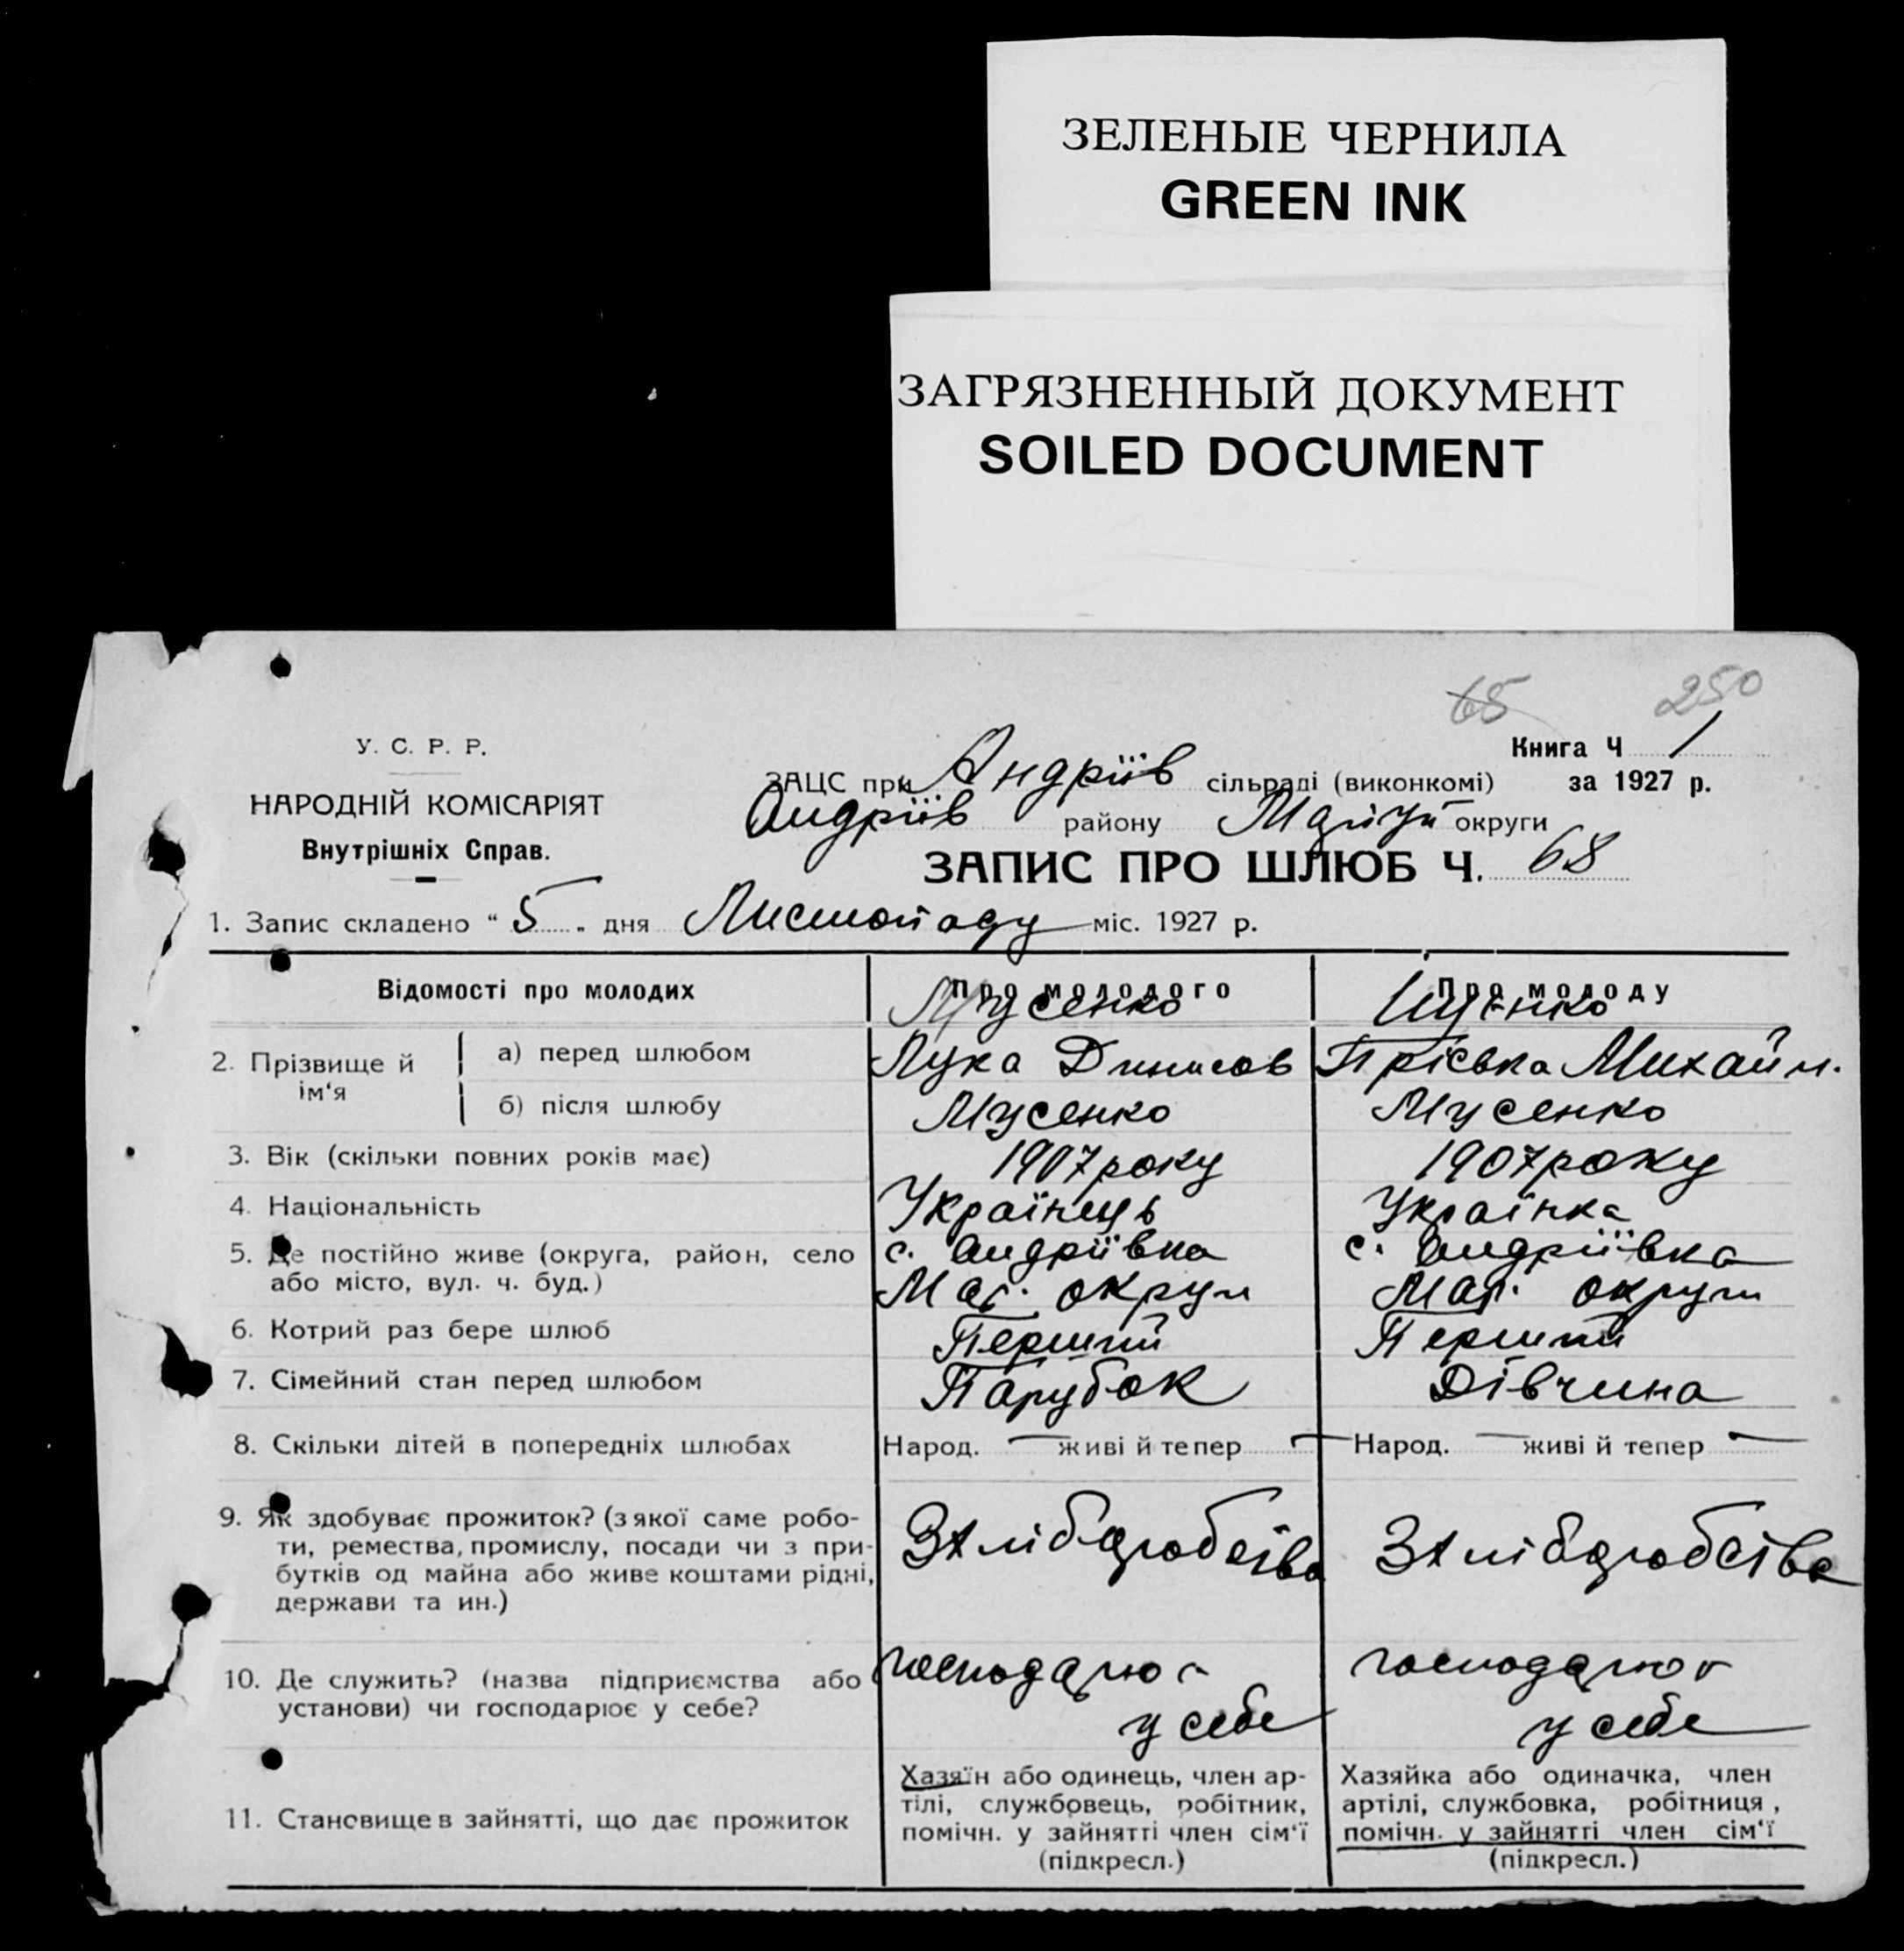 ЗЕЛЕНЫЕ ЧЕРНИЛА
GREEN INK
ЗАГРЯЗНЕННЫЙ ДОКУМЕНТ
SOILED DOCUMENT
65 250
У. С. Р. Р.
НАРОДНІЙ КОМІСАРІЯТ
Внутрішніх Справ.
Книга Ч 1
ЗАЦС при Андріїв сільраді (виконкомі) за 1927 р.
Андріїв району округи
ЗАПИС ПРО ШЛЮБ Ч. 68
1. Запис складено "5" дня Листопаду міс. 1927 р.
Відомості про молодих Про молодого Про молоду
Мусенко
2. Прізвище й ім'я
а) перед шлюбом Лука Динисов Пріська Михайл.
б) після шлюбу Мусенко Мусенко
3. Вік (скільки повних років має) 1907 року 1907 року
4. Національність Українець Українка
5. Де постійно живе (округа, район, село с. Андріївка с. Андріївка
або місто, вул. ч. буд.) Мар. округи Мар. округи
6. Котрий раз бере шлюб Перший Перший
7. Сімейний стан перед шлюбом Парубок Дівчина
8. Скільки дітей в попередніх шлюбах Народ. — живі й тепер — Народ. — живі й тепер —
9. Як здобуває прожиток? (з якої саме робо-
ти, ремества, промислу, посади чи з при-
бутків од майна або живе коштами рідні,
держави та ин.)
Зхліборобства Зхліборобства
10. Де служить? (назва підприємства або
установи) чи господарює у себе?
господарює господарює
у себе у себе
11. Становище в зайнятті, що дає прожиток
Хазяїн або одинець, член ар-
тілі, службовець, робітник,
помічн. у зайнятті член сім'ї
(підкресл.)
Хазяйка або одиначка, член
артілі, службовка, робітниця,
помічн. у зайнятті член сім'ї
(підкресл.)